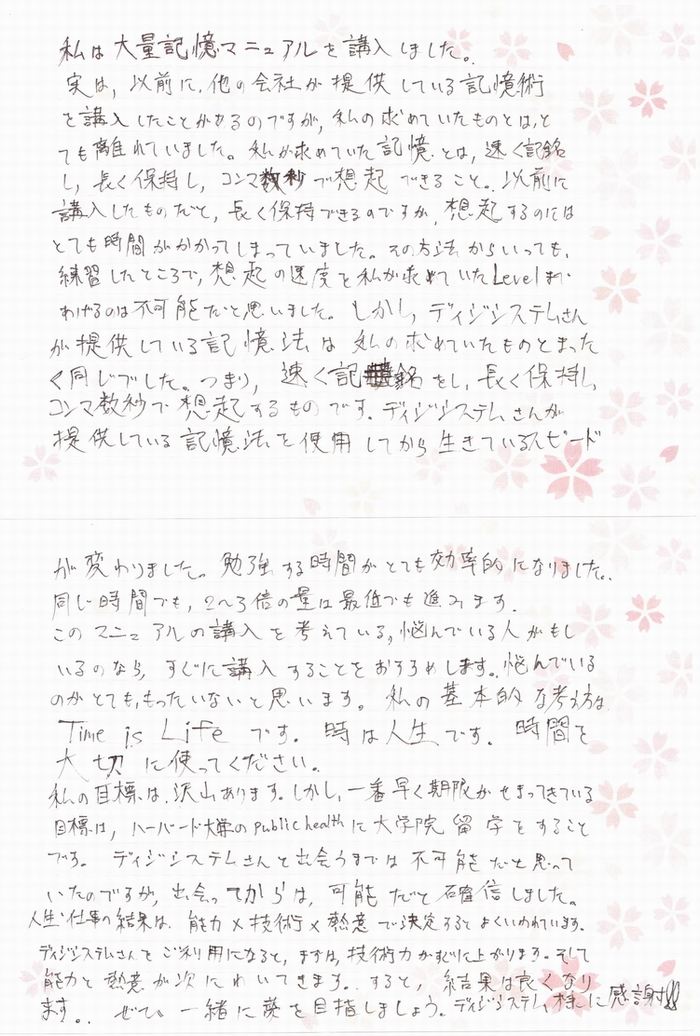 私は大量記憶マニュアルを講入しました。
実は、以前に、他の会社が提供している記憶術
を講入したことがあるのですが、私の求めていたものとは、と
ても離れていました。私が求めていた記憶とは、速く記銘
し、長く保持し、コンマ数秒で想起できること。以前に
講入したものだと、長く保持できるのですが、想起するのには
とても時間がかかってしまっていました。その方法からいっても、
練習したところで、想起の速度を私が求めていたLevelまで
あげるのは不可能だと思いました。しかし、ディジシステムさん
が提供している記憶法は私の求めていたものとまった
く同じでした。つまり、速く記銘をし、長く保持し、
コンマ数秒で想起するものです。ディジシステムさんが
提供している記憶法を使用してから生きているスピード
が変わりました。勉強する時間がとても効率的になりました。
同じ時間でも、2〜3倍の量は最低でも進みます。
このマニュアルの講入を考えている、悩んでいる人がもし
いるのなら、すぐに講入することをおすすめします。悩んでいる
のがとても、もったいないと思います。私の基本的な考え方は
Time is Life です。時は人生です。時間を
大切に使ってください。
私の目標は、沢山あります。しかし、一番早く期限がせまってきている
目標は、ハーバード大学のpublic healthに大学院留学をすること
です。ディジシステムさんと出会うまでは不可能だと思って
いたのですが、出会ってからは、可能だと確信しました。
人生・仕事の結果は、能力×技術×熱意で決定するとよくいわれています。
ディジシステムさんをご利用になると、まずは、技術力がすぐに上がります。そして
能力と熱意が次にわいてきます。すると、結果は良くなり
ます。ぜひ、一緒に夢を目指しましょう。ディジシステム様に感謝!!